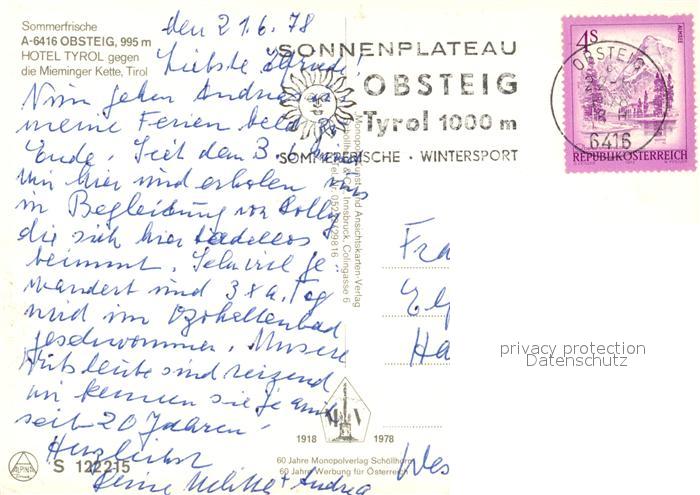 Sommerfrische
A-6416 OBSTEIG, 995 m
HOTEL TYROL gegen
die Mieminger Kette, Tirol
den 21.6.78
Liebste
Nun gehen
meine Ferien bald zu
Ende. Seit dem 3.
wir hier und erholen uns
in Begleitung von
die sich hier tadellos
benimmt. Sehr viel ge-
wandert und 3 x a. Tag
wird im Hallenbad
geschwommen. Unsere
Wirtsleute sind reizend
wir kennen sie ja auch
seit 20 Jahren!
Herzlichst
Deine + Andrea
SONNENPLATEAU
OBSTEIG
Tyrol 1000 m
SOMMERFRISCHE · WINTERSPORT
4S
ALMSEE
REPUBLIK ÖSTERREICH
OBSTEIG
6416
Monopol Kunst- und Ansichtskarten-Verlag
Schöllhorn & Co., Innsbruck, Colingasse 6
Fra
Ha
Wes
privacy protection
Datenschutz
1918 1978
60 Jahre Monopolverlag Schöllhorn
60 Jahre Werbung für Österreich
ALPINA
S 122215